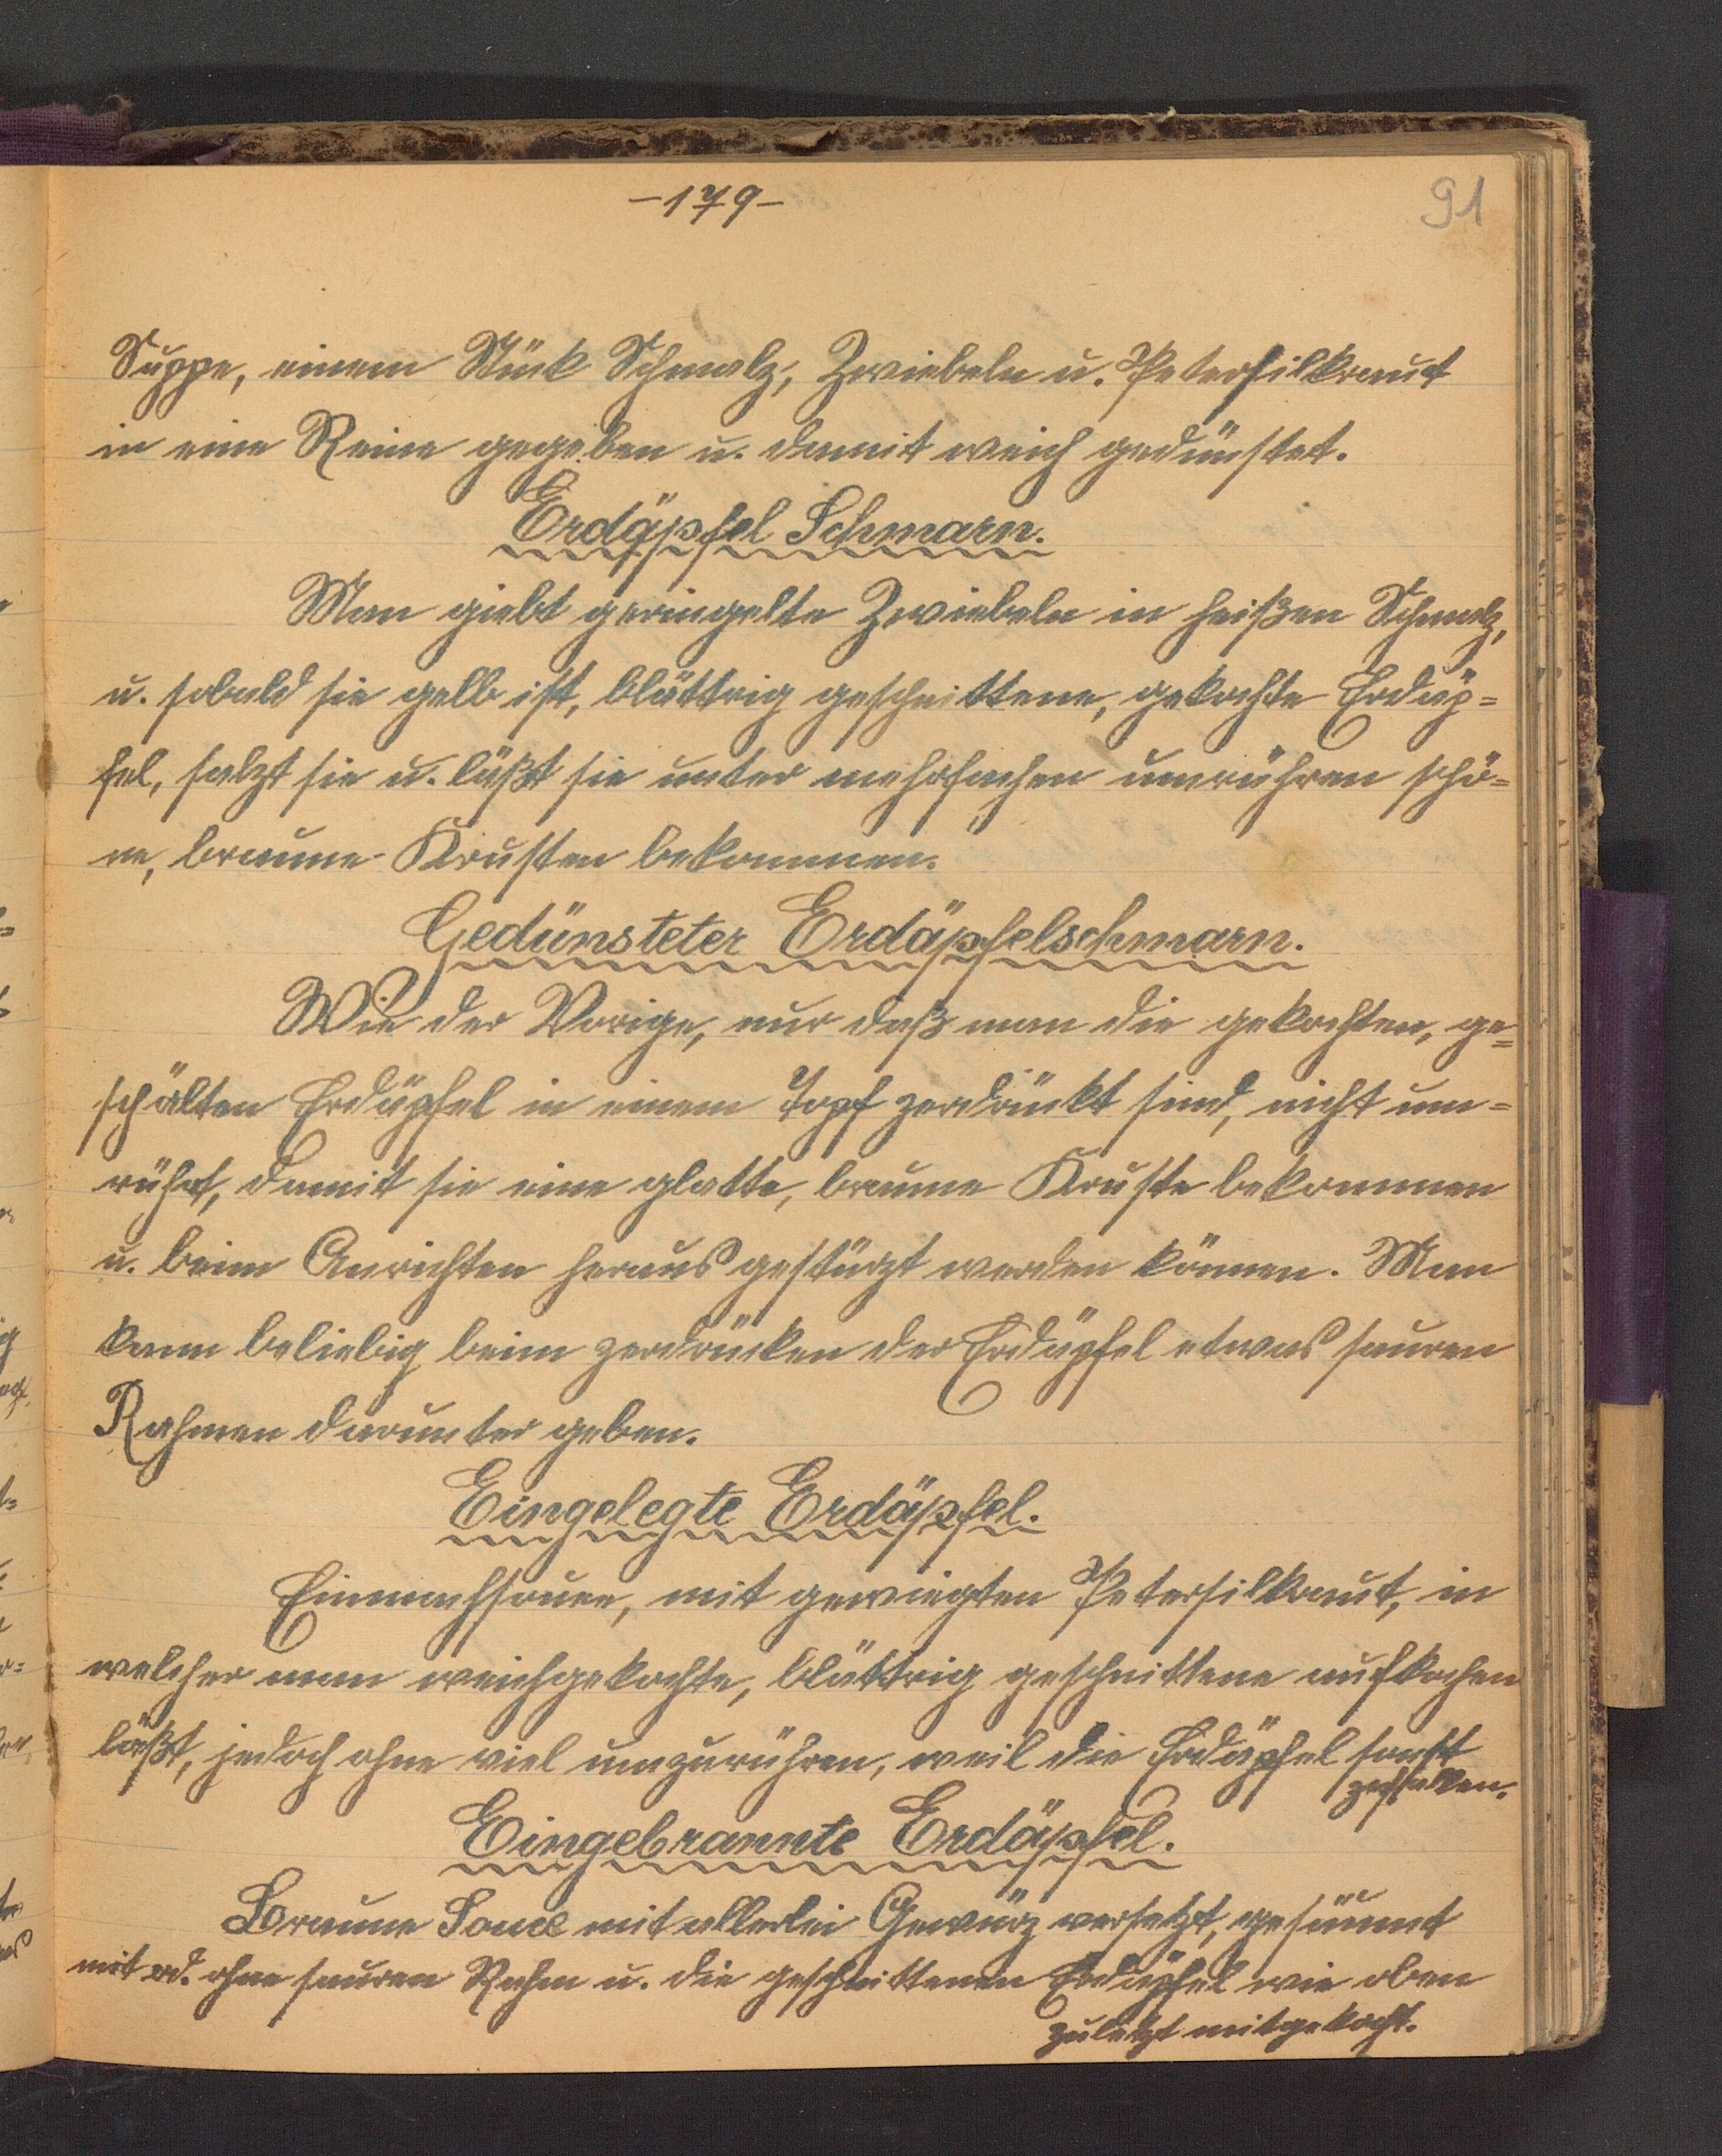 -179-
91
Suppe, einem Stück Schmalz, Zwiebeln u. Petersilkraut
in eine Reine gegeben u. damit weich gedünstet.
Erdäpfel Schmarn.
Man giebt geringelte Zwiebeln in heißen Schmalz,
u. sobald sie gelb ist, blättrig geschnittene, gekochte Erdäp=
fel, salzt sie u. läßt sie unter mehrfachen umrühren schö=
ne, braune Krusten bekommen.
Gedünsteter Erdäpfelschmarn.
Wie der Vorige, nur daß man die gekochten, ge=
schälten Erdäpfel in einem Topf zerdrückt sind, nicht um=
rührt, damit sie eine glatte, braune Kruste bekommen
u. beim Anrichten heraus gestürzt werden können. Man
kann beliebig beim zerdrücken der Erdäpfel etwas sauren
Rahmen darunter geben.
Eingelegte Erdäpfel.
Einmachsauce, mit gewiegten Petersilkraut, in
welcher man weichgekochte, blättrig geschnittene aufkochen
läßt, jedoch ohne viel umzurühren, weil die Erdäpfel sonst
zerfallen.
Eingebrannte Erdäpfel.
Braune Sauce mit allerlei Gewürz versetzt, gesäumt
mit od. ohne sauren Rahm u. die geschnittenen Erdäpfel wie oben
zuletzt mitgekocht.